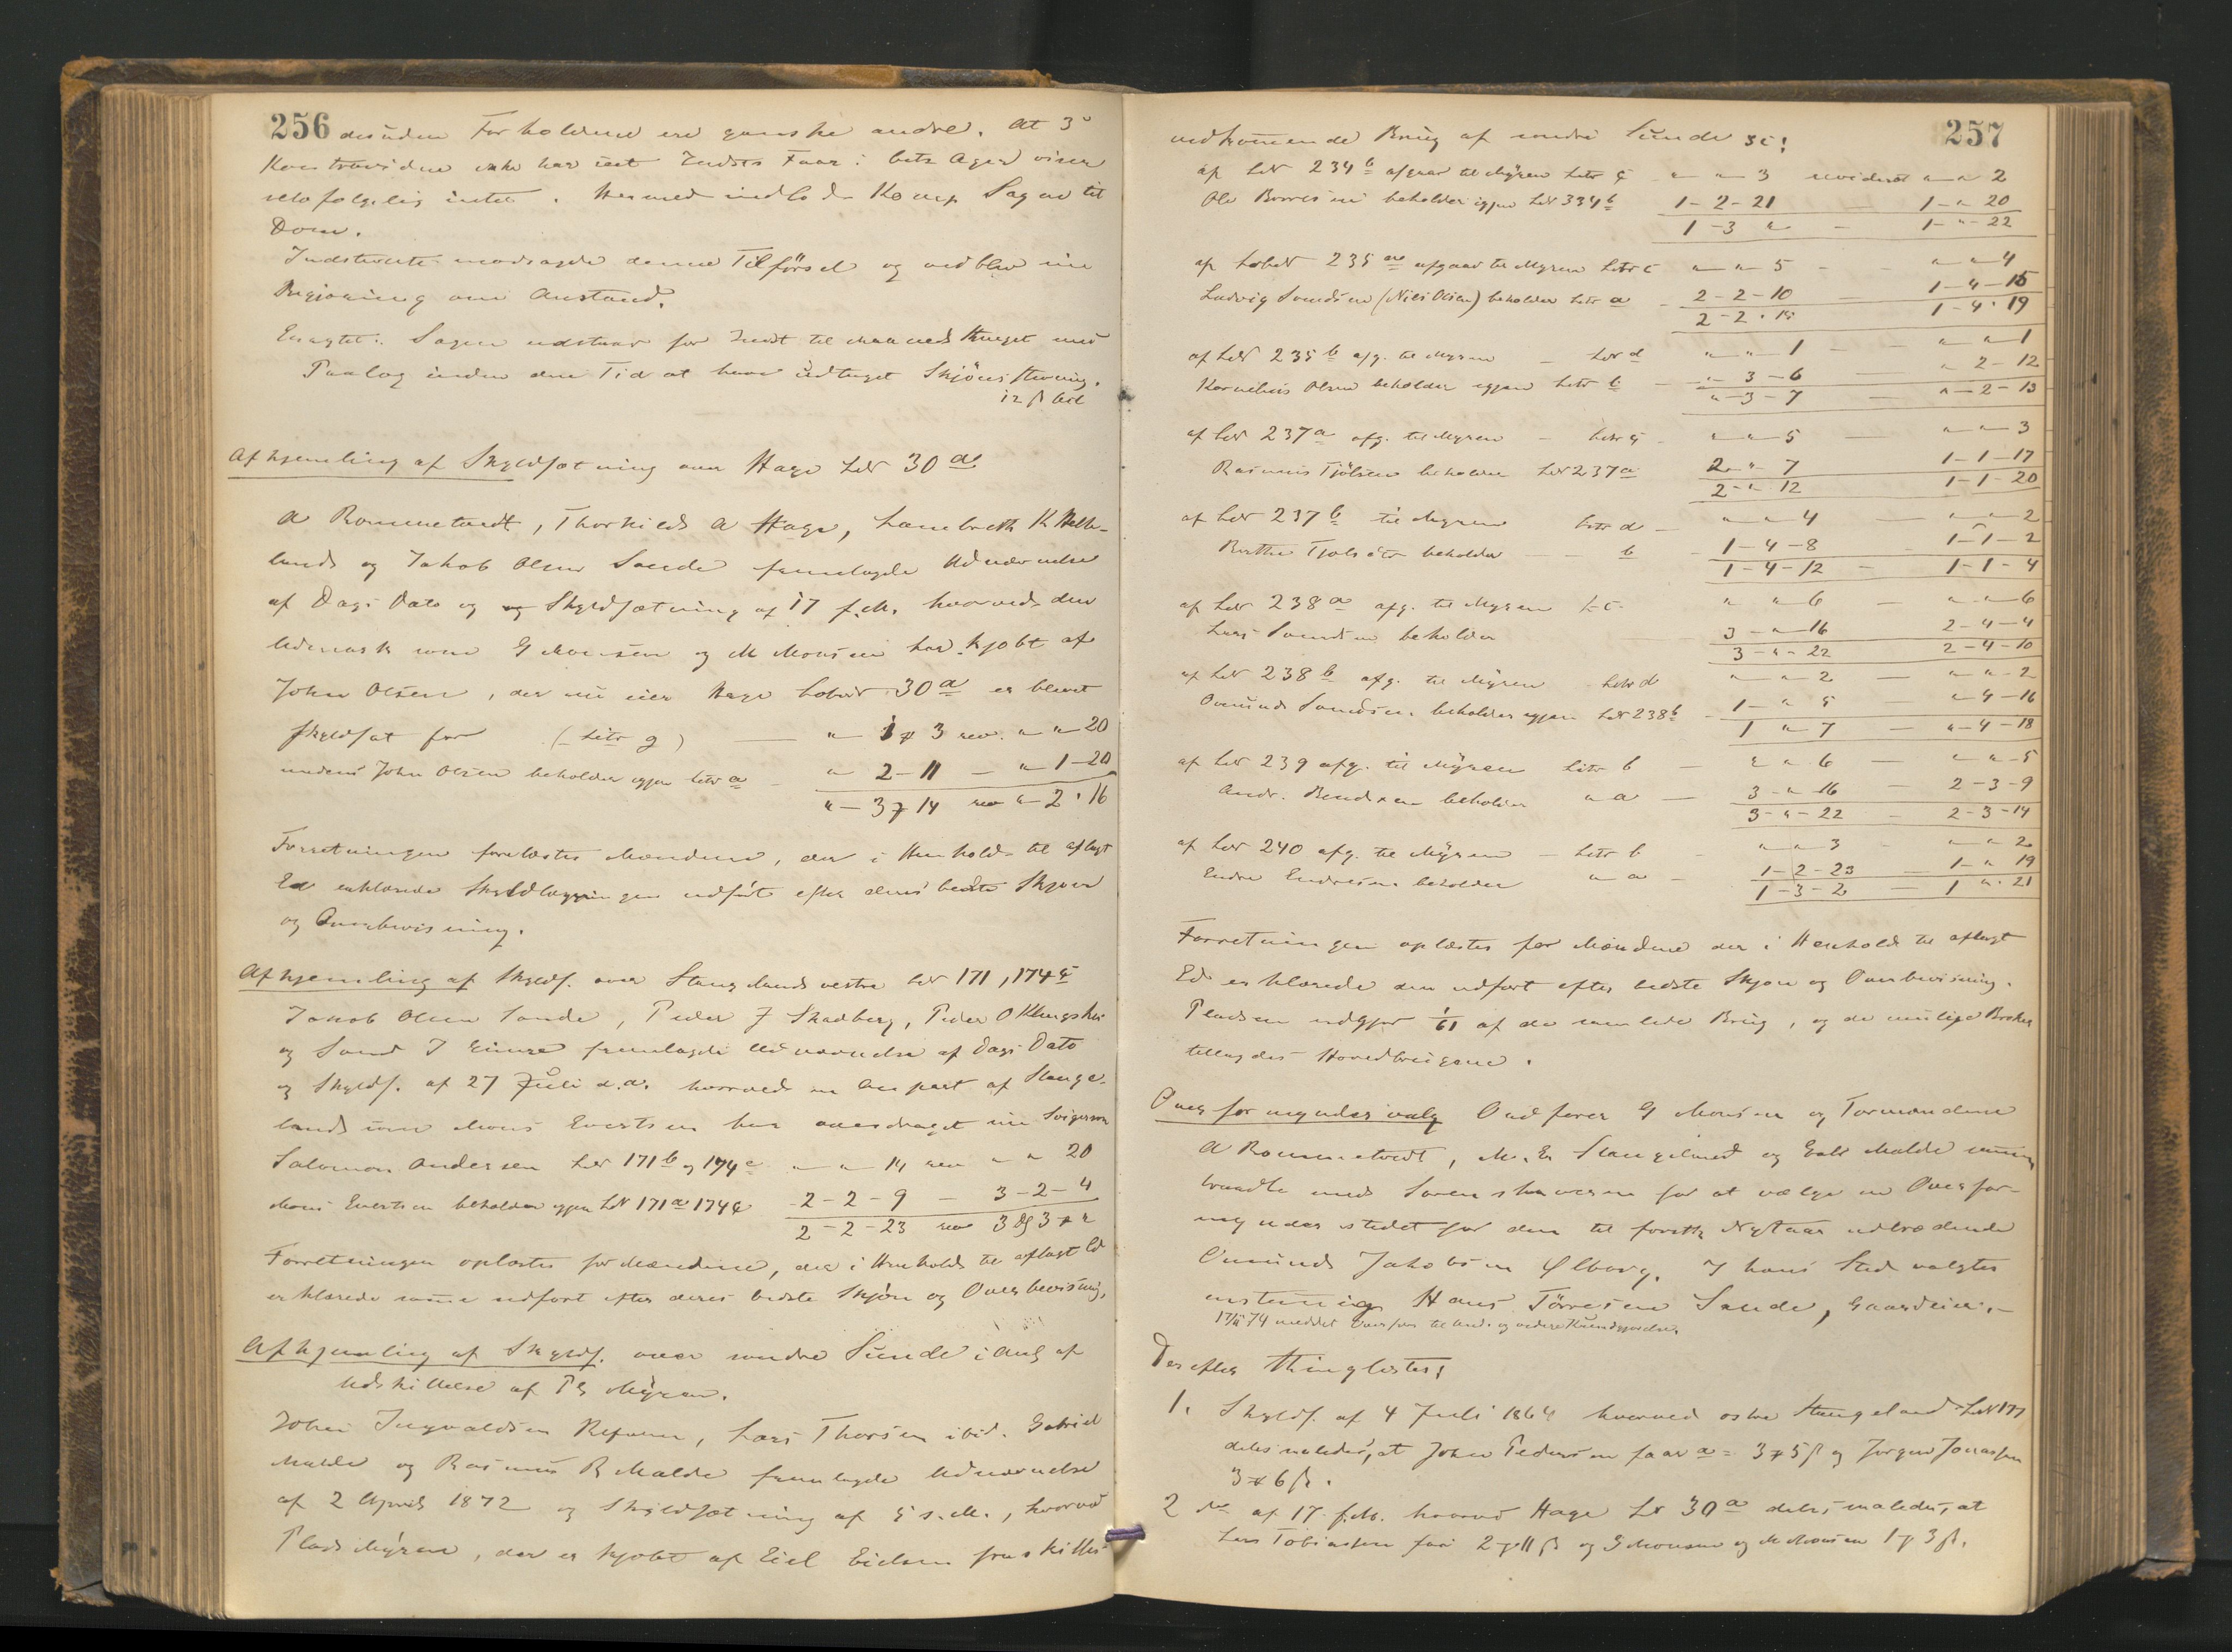 256 desuden Forholdene ere ganske andre. At 3
Kontravidne ikke har seet Indst Faar i bets Ager viser
selvfølgelig intet. Hermed indlod Komp Sagen til
Dom.
Indstevnte modsagde denne Tilførsel og vedblev sin
Begjæring om Anstand.
Eragtet: Sagen udstaar for Indst til Maanedsthinget med
Paalæg inden den Tid at have udtaget Skjønsstevning.
12 ß bet
Afhjemling af Skyldsætning over Hage LNr 30 a
A Rommetvedt, Thorkild A Hage, Lambreth K Melhe-
lands og Jakob Olsen Sande fremlagde Udnævnelse
af Dags Dato og Skyldsætning af 17 f.M. hvorved den
Udmark som G Monsen og M Monsen har kjøbt af
John Olsen, der nu eier Hage Løbnr 30 a er blevet
skyldsat for (Litr g) — " 1 3 rev. " " 20
medens John Olsen beholder igjen Litr a — " 2 - 11 — " 1 - 20
" - 3 14 rev " - 2 - 16
Forretningen forelæstes Mændene, der i Henhold til aflagt
Ed erklærede Skyldlægningen udført efter deres bedste Skjøn
og Overbevisning.
Afhjemling af Skylds. over Stangelands vestre LNr 171, 174 a
Jakob Olsen Sande, Peder J Skadberg, Peder O Klungshei
og Svend I Kimre fremlagde Udnævnelse af Dags Dato
og Skylds. af 27 Juli d.A. hvorved en Anpart af Stange-
land som Mons Evertsen har overdraget sin Svigersøn
Salomon Andersen LNr 171 b og 174 c " " 14 rev " " 20
Mons Evertsen beholder igjen LNr 171 a 174 a 2 - 2 - 9 — 3 - 2 - 4
2 - 2 - 23 rev 3 3
Forretningen oplæstes for Mændene, der i Henhold til aflagt Ed
erklærede samme udført efter deres bedste Skjøn og Overbevisning.
Afhjemling af Skylds. over søndre Sunde i Anl af
Udskillelse af Pl Myren.
John Ingvaldsen Refsnes, Lars Thorsen ibid. Gabriel
Malde og Rasmus R Malde fremlagde Udnævnelse
af 2 April 1872 og Skyldsætning af 5 s.M., hvorved
Plads Myren, der er kjøbt af Eiel Eielsen fraskilles
257
vedkommende Brug af søndre Sunde
af LNr 234 b afgaar til Myren Litr c " " 3 revideret " " 2
Ole Børresen beholder igjen LNr 334 b 1 - 2 - 21 — 1 - " 20
1 - 3 " — 1 - " - 22
af LøbNr 235 a afgaar til Myren Litr c " " 5 - " " 4
Ludvig Svendsen (Niels Olsen) beholder Litr a 2 - 2 - 10 — 1 - 4 - 15
2 - 2 - 15 1 - 4 - 19
af LNr 235 b afg. til Myren — Litr d " " 1 — " " 1
Kornelius Olsen beholder igjen Litr b " - 3 - 6 — " 2 - 12
" - 3 - 7 — " - 2 - 13
af LNr 237 a afg. til Myren — Litr c " " 5 — " " 3
Rasmus Tjølsen beholder LNr 237 a 2 - " 7 1 - 1 - 17
2 - " 12 1 - 1 - 20
af LNr 237 b til Myren Litr d — " " 4 — " " 2
Berthe beholder — b 1 - 4 - 8 — 1 - 1 - 2
1 - 4 - 12 — 1 - 1 - 4
af LNr 238 a afg. til Myren L c " " 6 — " " 6
Lars Svendsen beholder 3 - " 16 2 - 4 - 4
3 - " - 22 2 - 4 - 10
af LNr 238 b afg. til Myren Litr d " " 2 — " " 2
Omund Svendsen beholder igjen LNr 238 b 1 - " 5 " 4 - 16
1 " 7 — " - 4 - 18
af LNr 239 afg. til Myren Litr b — " " 6 — " " 5
Andr. Bendixen beholder " a — 3 - " 16 — 2 - 3 - 9
3 - " - 22 — 2 - 3 - 14
af LNr 240 afg. til Myren — Litr b — " " 3 " " 2
Endre Endresen beholder " a — 1 - 2 - 23 — 1 - " 19
1 - 3 - 2 — 1 " 21
Forretningen oplæstes for Mændene der i Henhold til aflagt
Ed erklærede den udført efter bedste Skjøn og Overbevisning.
Pladsen udgjør 1/61 af de samlede Brug, og de mulige Brøker
tillagdes Hovedbrugene.
Overformyndervalg Ordfører G Monsen og Formændene
A Rommetvedt, M. E. Stangeland og Eali Malde sammen-
traadte med Sorenskriveren for at vælge en Overfor-
mynder istedet for den til førstk Nytaar udtrædende
Omund Jakobsen Ølborg. I hans Sted valgtes
enstemmig Hans Tørresen Sande, Gaardeier.—
17/11 74 meddelt Overfor til Und. og videre Kundgjørelse.
Derefter thinglæstes:
1. Skylds. af 4 Juli 1864 hvorved østre Stangeland LNr 177
deles saaledes, at John Pedersen faar a = 3 5 ß og Jørgen Jonassen
3 6 ß.
2 do af 17 f.M. hvorved Hage LNr 30 a deles saaledes, at
Lars Tobiassen faar 2 11 ß og G Monsen og M Monsen 1 3 ß.